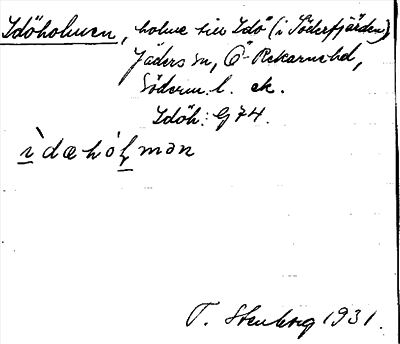 Idöholmen, holme till Idö (i Söderfjärden)
Jäders sn, Ö-Rekarne hd,
Söderm. l. ek.
Idöh: G74.
ìdæhólmən
T. Stenborg 1931.